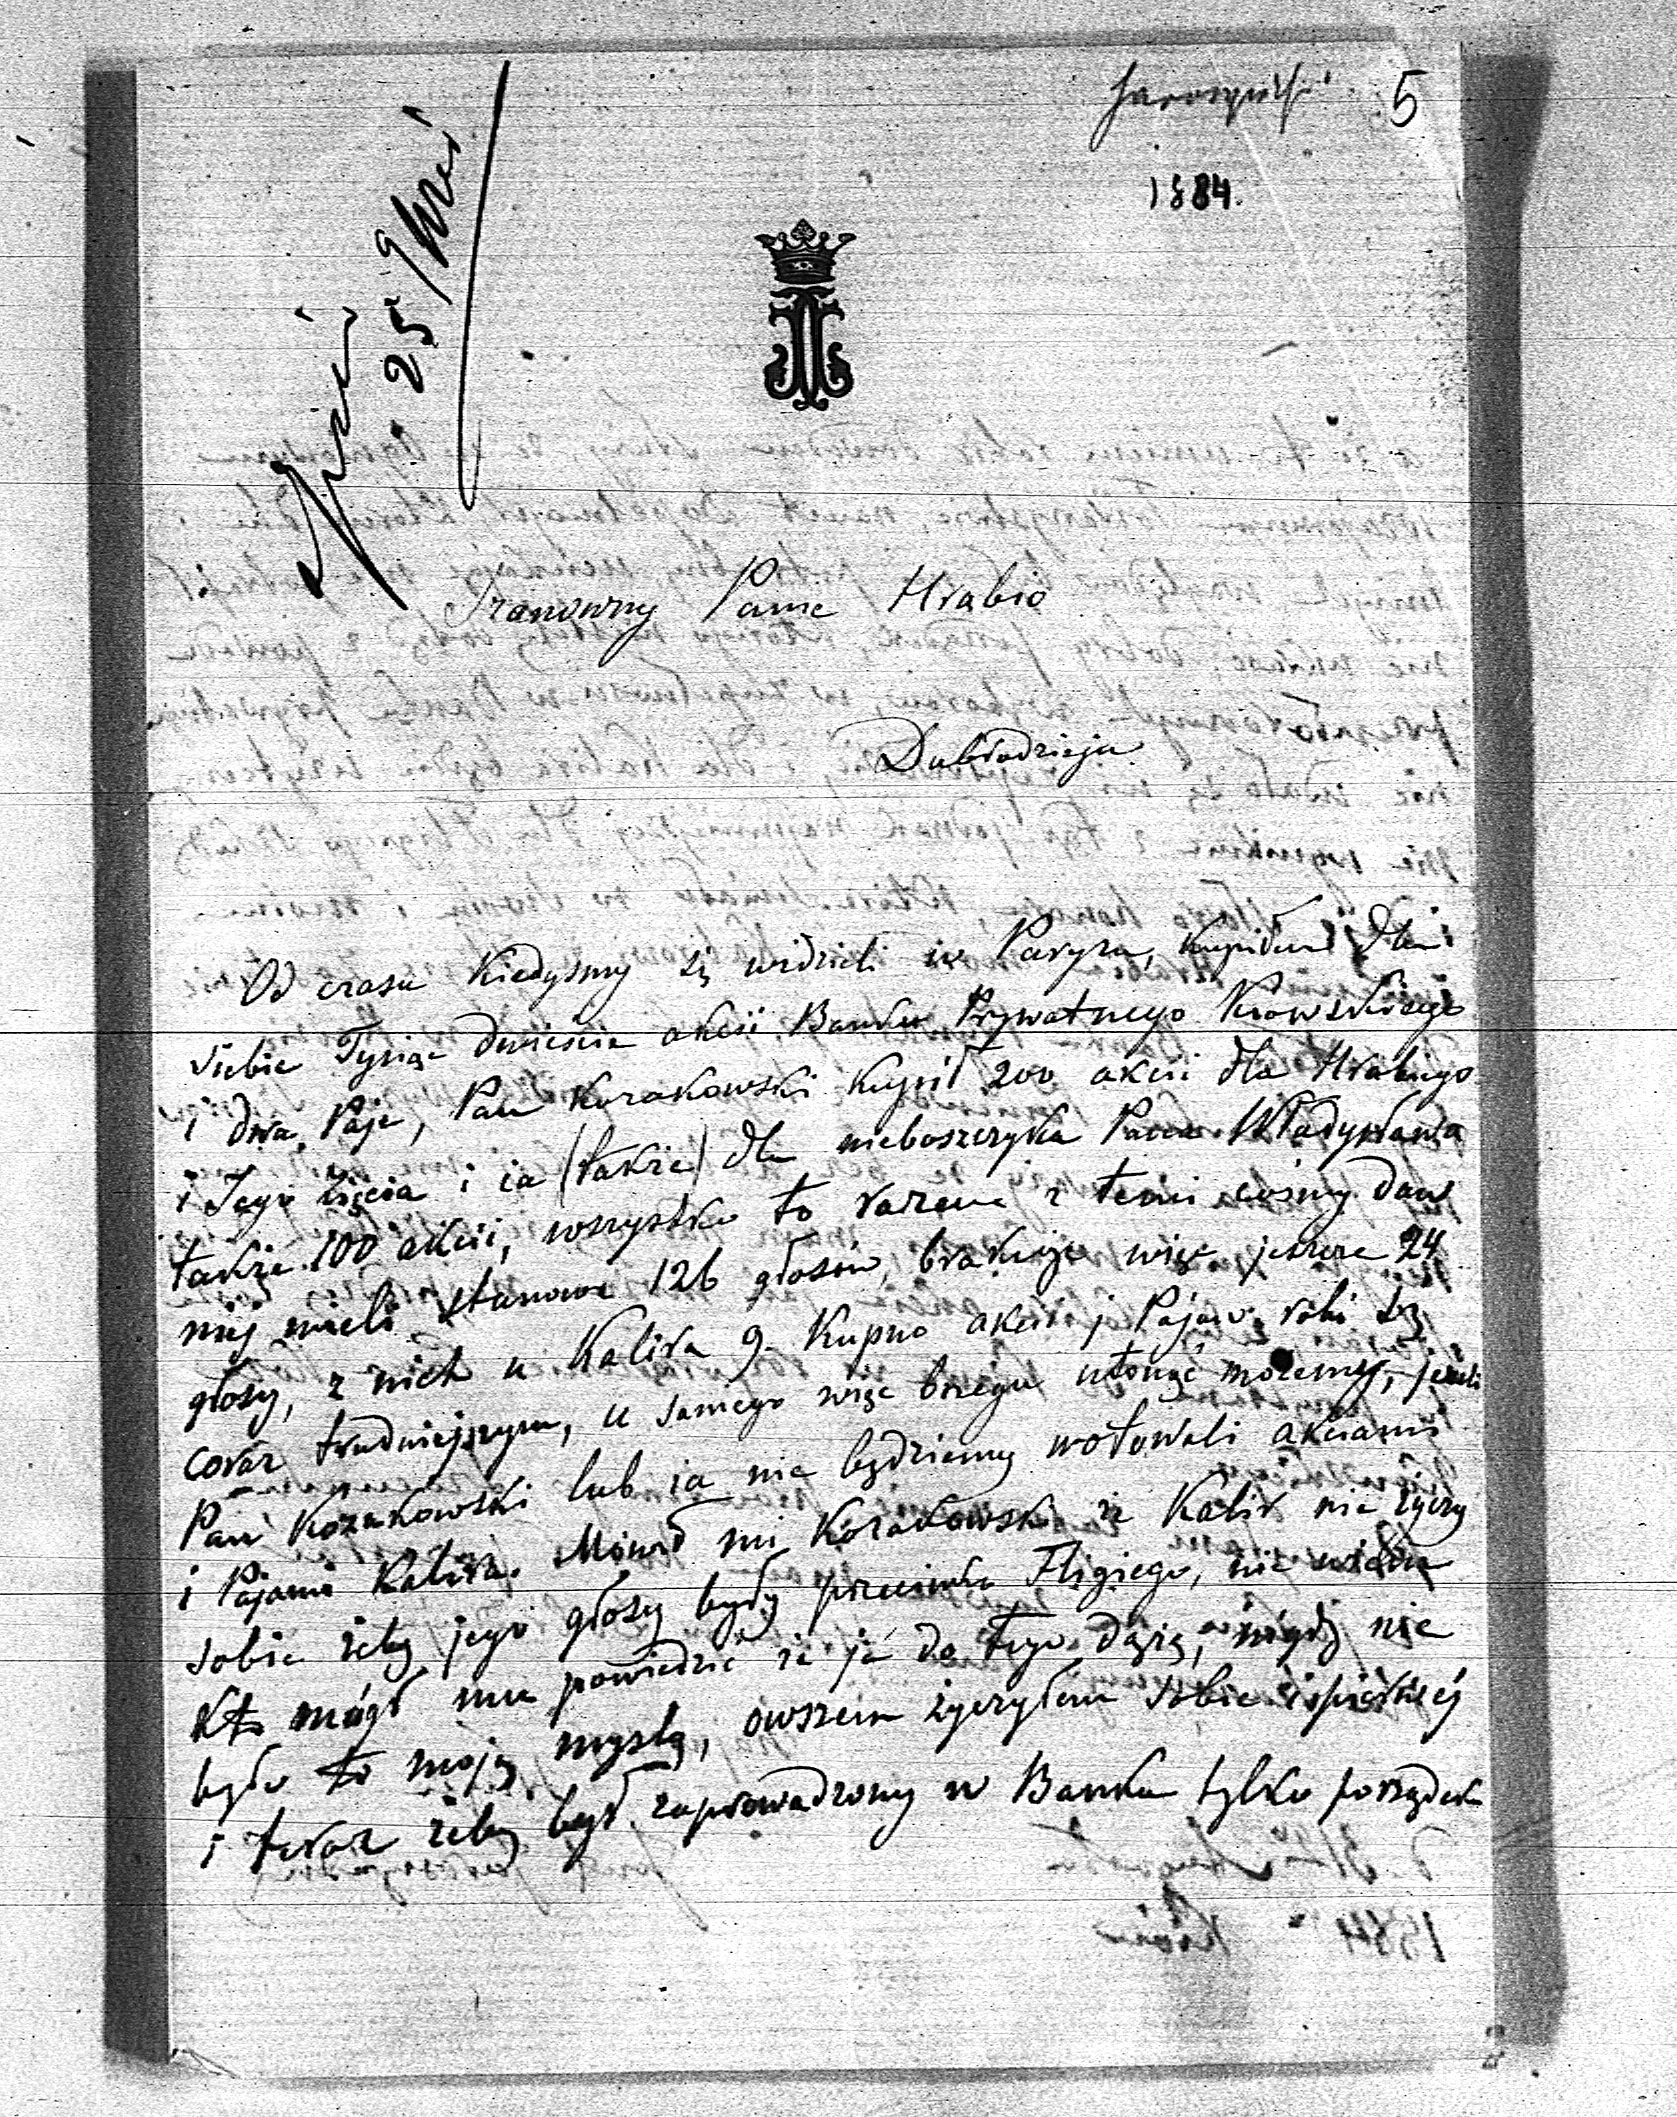 Jaroszyński 5
1884.
25 9bris
Szanowny Panie Hrabio
Dobrodzieju
Od czasu kiedyśmy się widzieli w Paryżu, kupiłem dla
siebie Tysiąc dwieście akcii Banku Prywatnego Kiowskiego
i dwa Paje, Pan Kozakowski kupił 200 akcii dla Hrabiego
i Jego Zięcia i ia (także) dla nieboszczyka Pana Władysława
także 100 akcii, wszystko to razem z temi cośmy daw
niej mieli stanowi 126 głosów, brakuje więc jeszcze 24
głosy, z nich u Kalixa 9. Kupno akcii i Pajów robi się
coraz trudniejszym, u samego więc brzegu utonąć możemy, jeżeli
Pan Kozakowski lub ia nie będziemy wotowali akciami
i Pajami Kalixa. Mówił mi Kozakowski że Kalix nie życzy
sobie żeby jego głosy były przeciwko Fligiego, nie wiem
kto mógł mu powiedzić że ja do tego dążę, nigdy nie
było to moją myslą, owszem życzyłem sobie i pierwiej
i teraz żeby był zaprowadzony w Banku tylko porządek